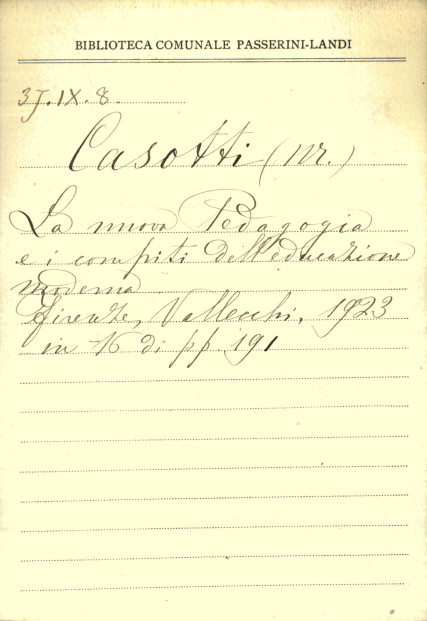 BIBLIOTECA COMUNALE PASSERINI-LANDI
3J.IX.8.
Casotti (M.)
La nuova Pedagogia
e i compiti dell'educazione
moderna
Firenze, Vallecchi, 1923
in 16 di pp. 191